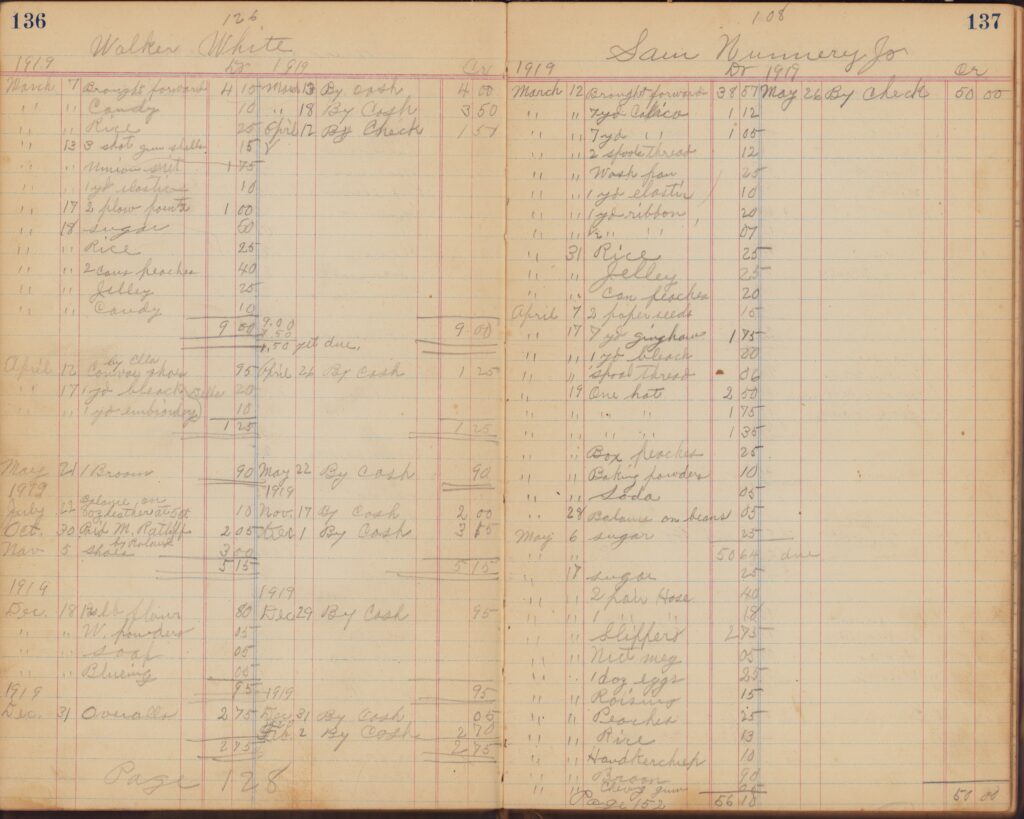 136
126
Walker White
1919 Dr 1919 Cr
March 7 Brought forward 4 15 Mar 13 By Cash 4 00
" " Candy 10 " 18 By Cash 3 50
" " Rice 25 April 12 By Check 1 50
" 13 3 shot gun shells 15
" " Union suit 1 75
" " 1 yd elastic 10
" 17 2 plow points 1 00
" 18 sugar 60
" " Rice 25
" " 2 cans peaches 40
" " Jelley 25
" " Candy 10
9 00 9.00 9 00
7.50
1.50 yet due.
by Ella
April 12 Canvas shoes 95 April 26 By Cash 1 25
" 17 1 yd bleach 20
" " 1 yd embroidery 10
1 25 1 25
May 21 1 Broom 90 May 22 By Cash 90
1919 1919
Balance on
July 22 10 Nov. 17 By Cash 2 00
Oct. 30 Paid M. Ratliff 2 05 Dec 1 By Cash 3 15
Nov 5 shoes 3 00
5 15 5 15
1919 1919
Dec. 18 lb flour 80 Dec 29 By Cash 95
" " W. powders 05
" " Soap 05
" " Blueing 05
95 95
1919 1919
Dec. 31 Overalls 2 75 Dec. 31 By Cash 05
Feb. 2 By Cash 2 70
2 75 2 75
Page 128
137
108
Sam Nunnery Jr
1919 Dr 1919 Cr
March 12 Brought forward 38 57 May 26 By Check 50 00
" " 7 yd Calico 1 12
" " 7 yd " " 1 05
" " 2 spools thread 12
" " Wash pan 25
" " 1 yd elastic 10
" " 1 yd ribbon 20
" " " " 07
" 31 Rice 25
" " Jelley 25
" " Can peaches 20
April 7 2 paper seeds 10
" 17 7 yd gingham 1 75
" " 1 yd bleach 20
" " spool thread 06
" 19 One hat 2 50
" " " " 1 75
" " " " 1 35
" " Box peaches 25
" " Baking powders 10
" " Soda 05
" 28 Balance on beans 05
May 6 sugar 25
" " 50 64 due
" 17 sugar 25
" " 2 pair Hose 40
" " 1 " " 18
" " Slippers 2 75
" " Nut meg 05
" " 1 doz eggs 25
" " Raisins 15
" " Peaches 25
" " Rice 13
" " Handkerchief 10
" " Broom 90
" " Chewing gum 05
Page 152 56 10 50 00